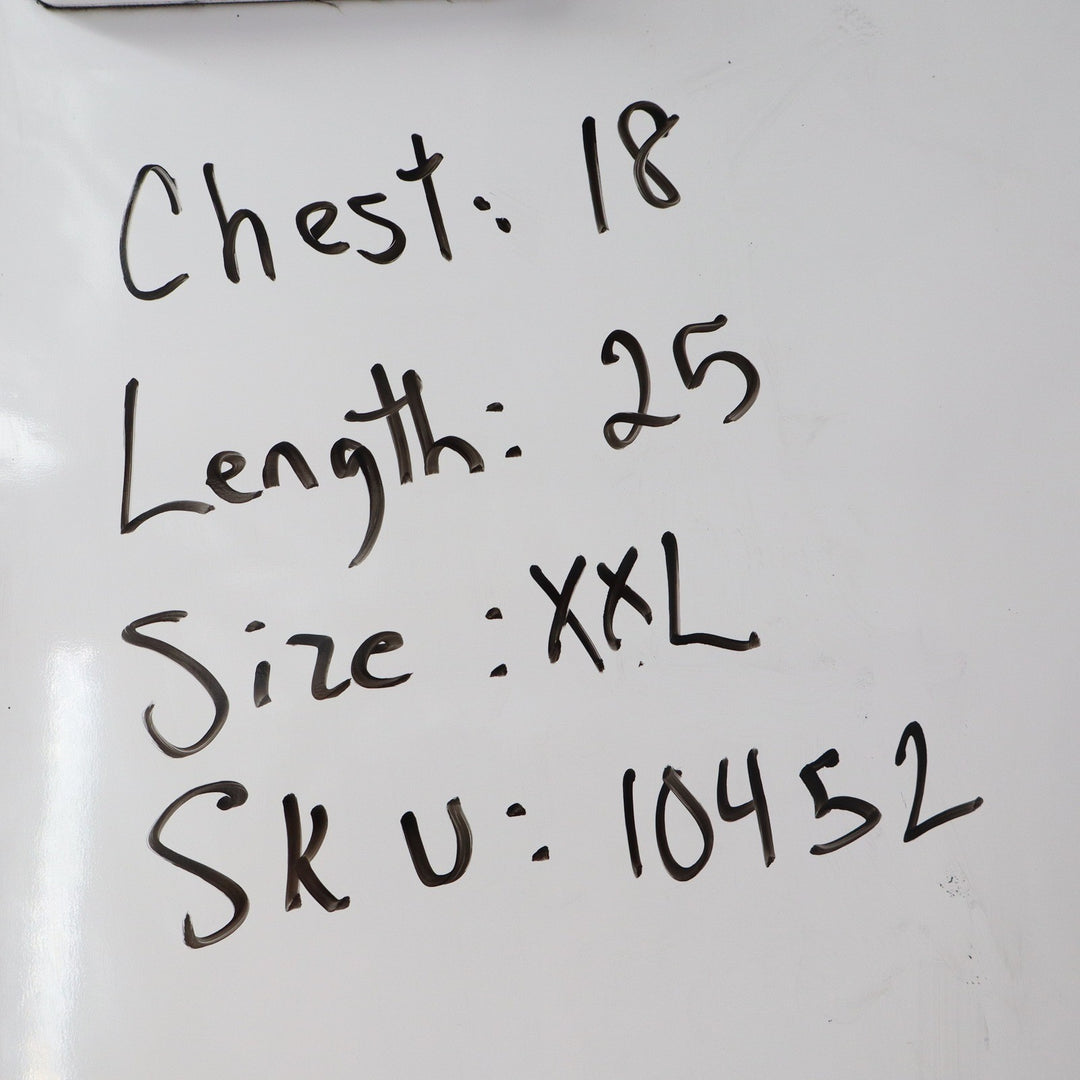 Chest: 18
Length: 25
Size: XXL
SKU: 10452